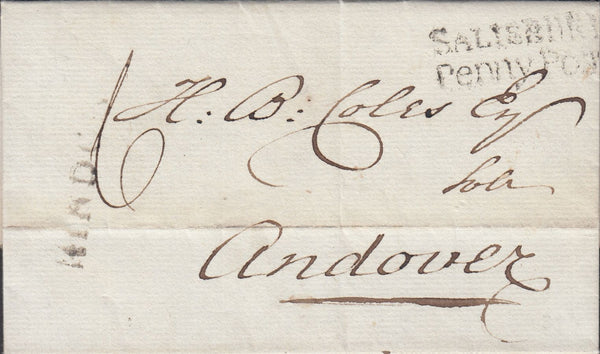 SALISBURY
Penny Post
6 H: B: Coles Esq
Solr
Andover
HIND